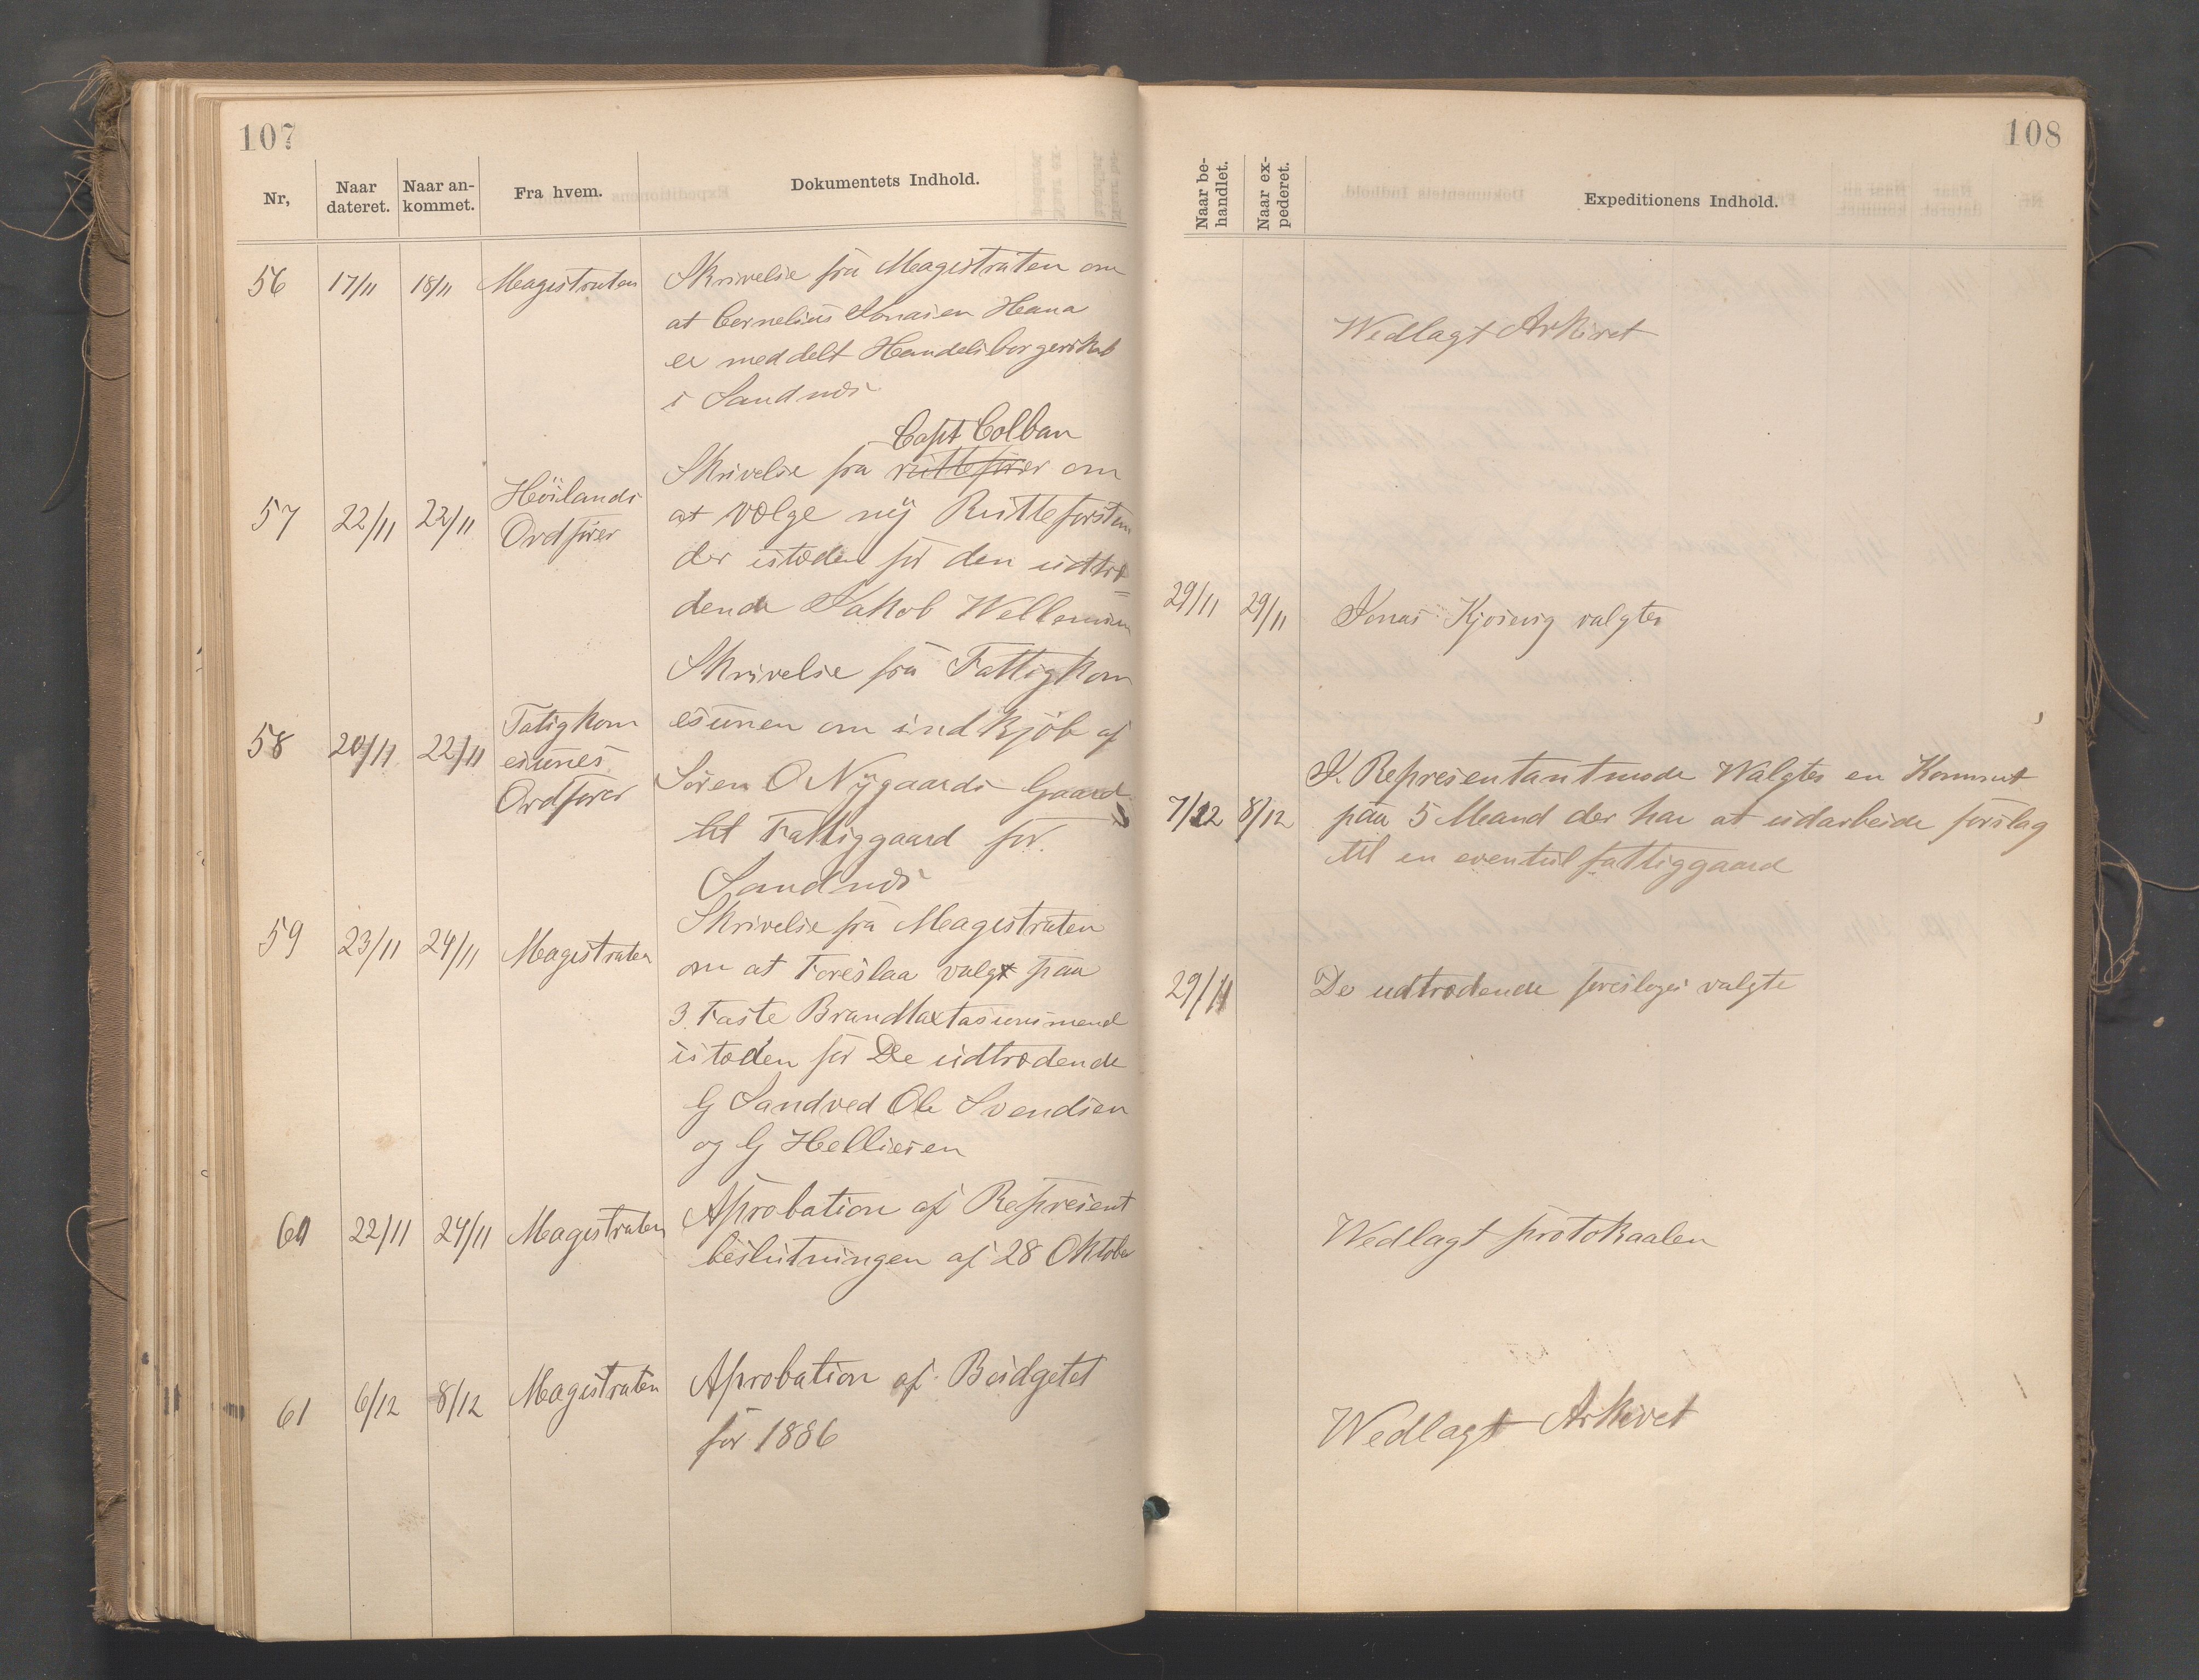 107
Nr,
Naar dateret.
Naar an-kommet.
Fra hvem.
Dokumentets Indhold.
56 17/11 18/11 Magistraten
Skrivelse fra Magistraten om
at Cornelius Jonasen Hana
er meddelt Handelsborgerskab
i Sandnæs
57 22/11 22/11
Höilands
Ordförer
Capt Colban
Skrivelse fra rullefører om
at vælge nÿ Rulleforstan
der istæden for den udtræ=
dende Jakob
58 20/11 22/11
Fatigkom
esunes
Ordförer
Skrivelse fra Fattigkom
esunen om indkjöb af
Sören O Nÿgaards Gaard
til Fattiggaard for
Sandnæs
59 23/11 24/11 Magistraten
Skrivelse fra Magistraten
om at Foreslaa valgt paa
3 Faste
istæden for De udtrædende
G Sandved Ole Svendsen
og G Helliesen
60 22/11 24/11 Magistraten
Aprobation af Represent
beslutningen af 28 Oktober
61 6/12 8/12 Magistraten
Aprobation af Budgetet
for 1886
108
Naar be-handlet.
Naar ex-pederet.
Expeditionens Indhold.
Wedlagt Arkivet
29/11 29/11 Jonas Kjosvig valgtes
7/12 8/12
I Representantmøde Walgtes en Kommit
paa 5 Mand der har at udarbeide forslag
til en eventul fattiggaard
29/11
De udtrædende foresloges valgte
Wedlagt protokaalen
Wedlagt Arkivet